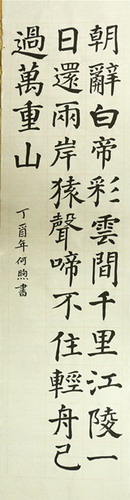 朝辭白帝彩雲間千里江陵一
日還兩岸猿聲啼不住輕舟已
過萬重山
丁酉年何煦書